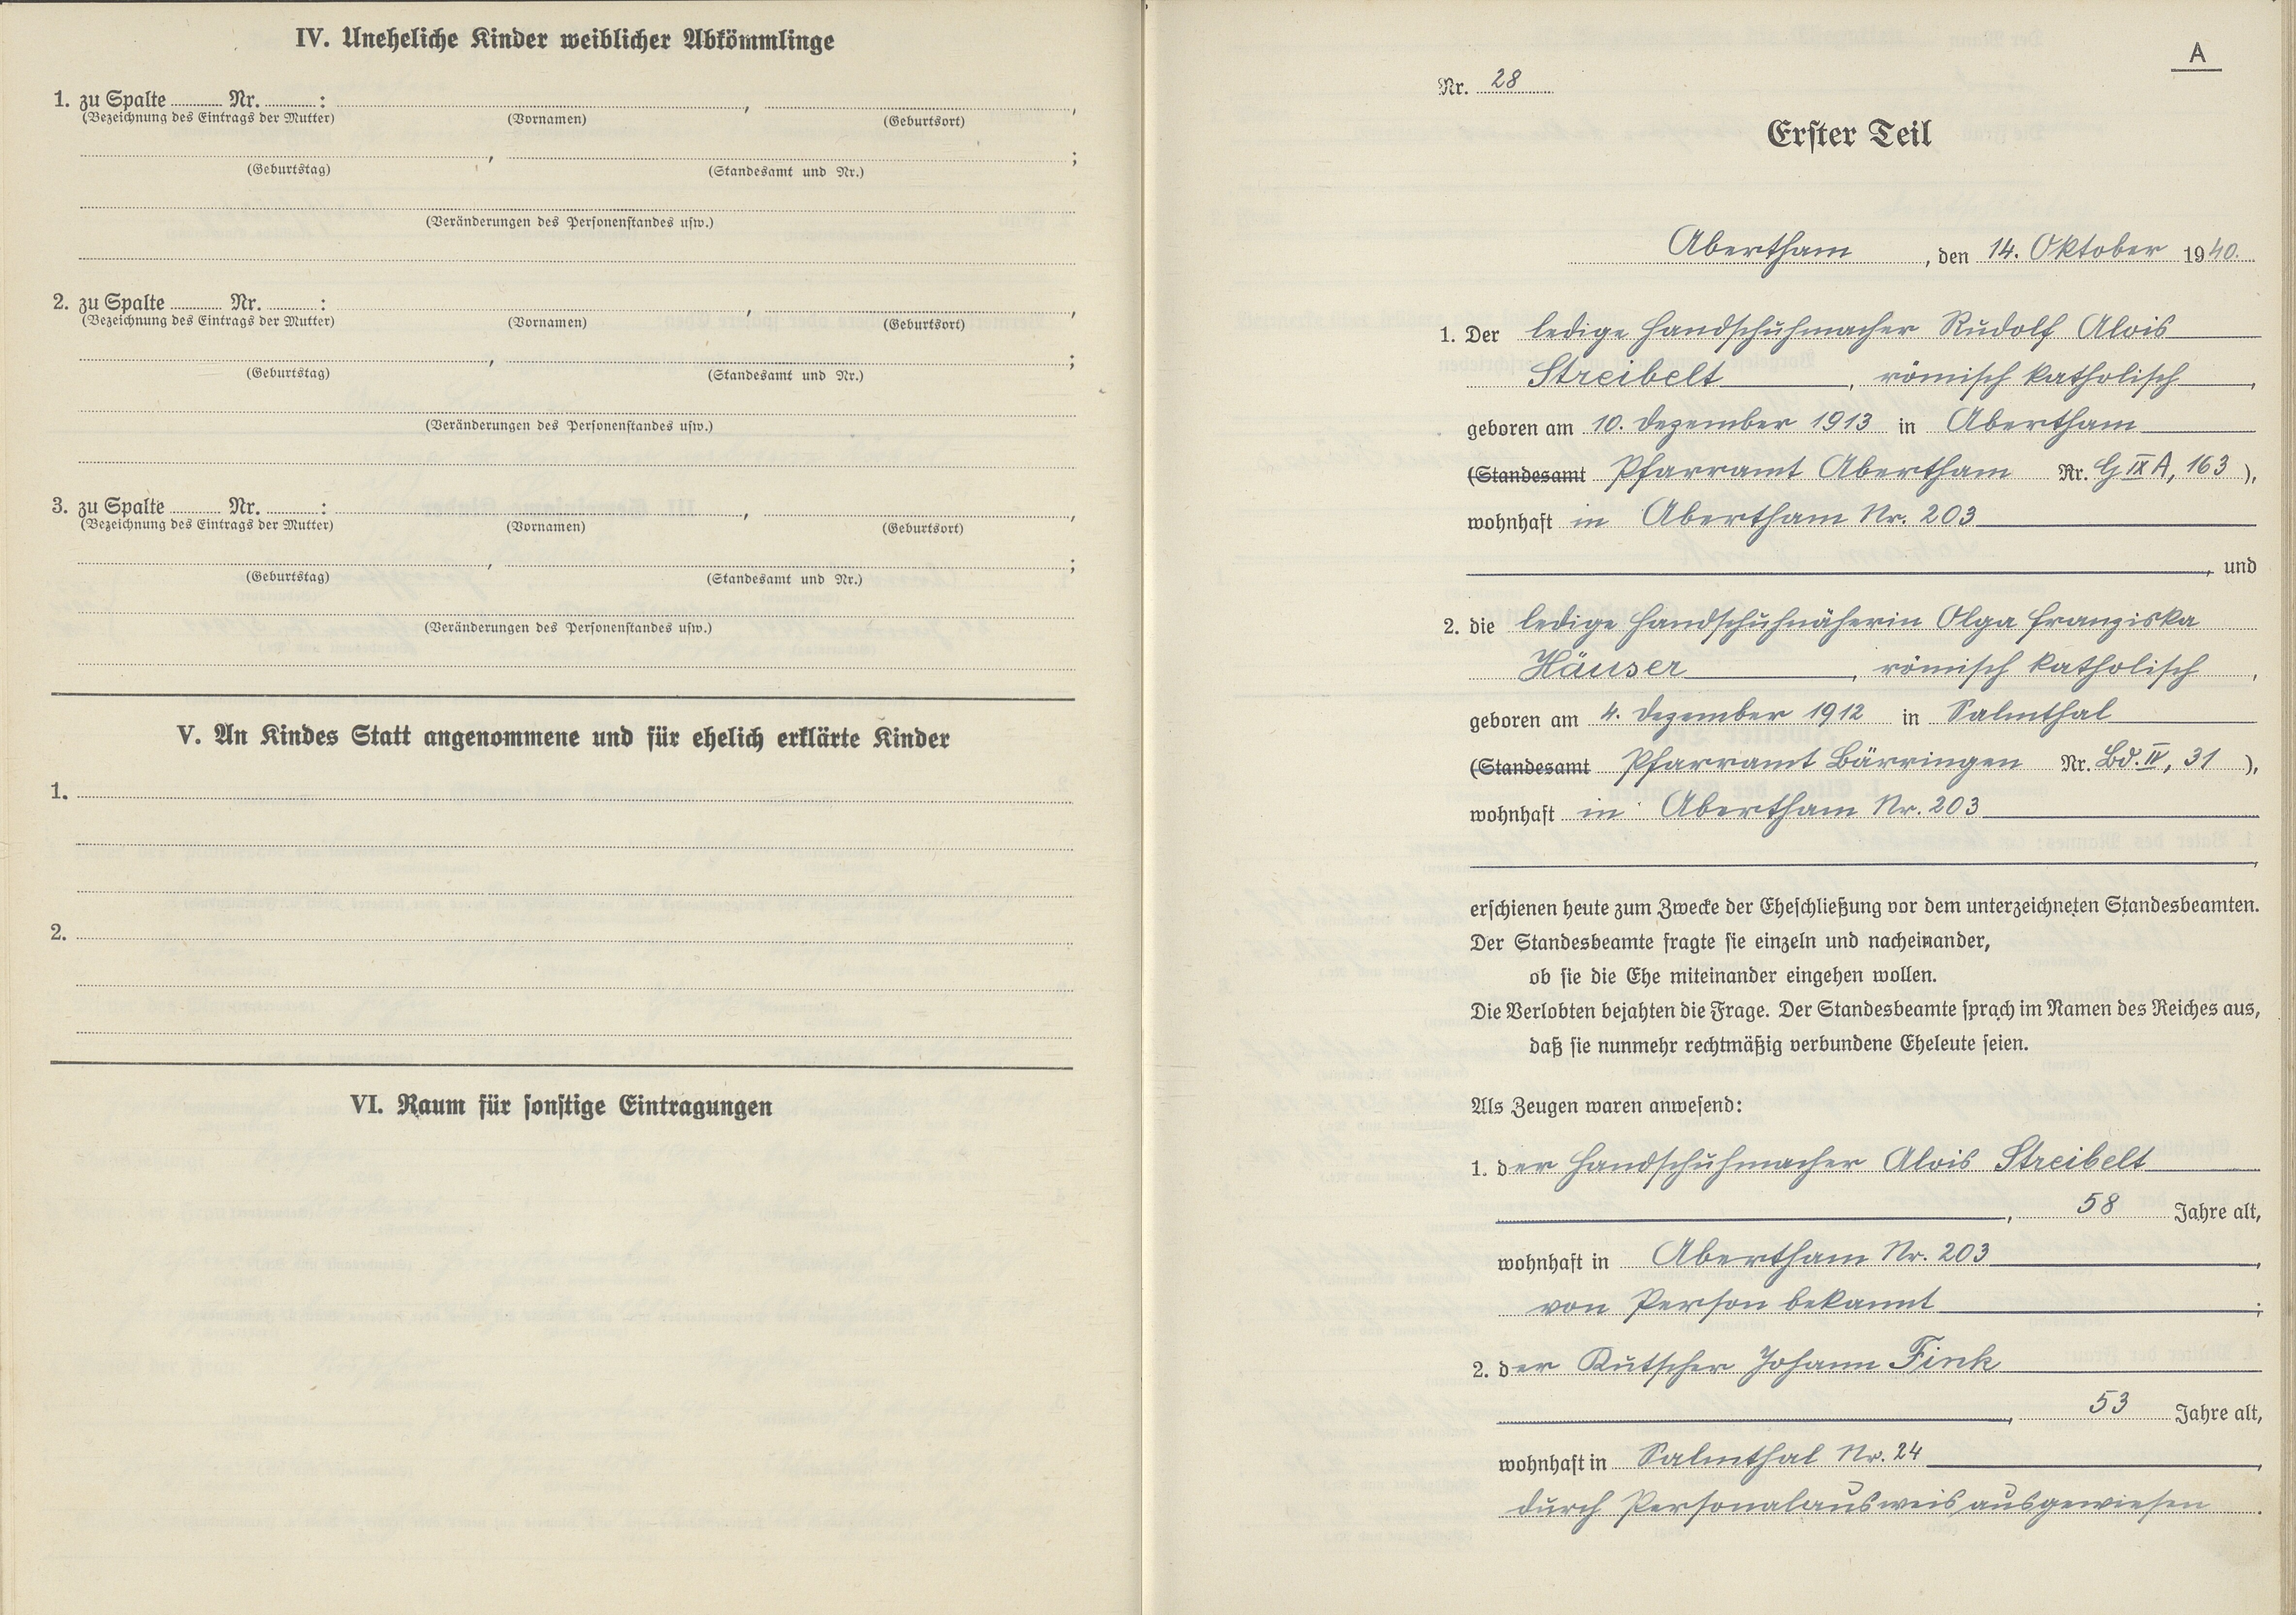 IV. Uneheliche Kinder weiblicher Abkömmlinge
1. zu Spalte ........ Nr. ........ : , ,
(Bezeichnung des Eintrags der Mutter) (Vornamen) (Geburtsort)
, ;
(Geburtstag) (Standesamt und Nr.)
(Veränderungen des Personenstandes usw.)
2. zu Spalte ........ Nr. ........ : , ,
(Bezeichnung des Eintrags der Mutter) (Vornamen) (Geburtsort)
, ;
(Geburtstag) (Standesamt und Nr.)
(Veränderungen des Personenstandes usw.)
3. zu Spalte ........ Nr. ........ : , ,
(Bezeichnung des Eintrags der Mutter) (Vornamen) (Geburtsort)
, ;
(Geburtstag) (Standesamt und Nr.)
(Veränderungen des Personenstandes usw.)
V. An Kindes Statt angenommene und für ehelich erklärte Kinder
1.
2.
VI. Raum für sonstige Eintragungen
A
Nr. 28
Erster Teil
Abertham, den 14. Oktober 1940.
1. Der ledige Handschuhmacher Rudolf Alois
Streibelt, römisch katholisch,
geboren am 10. Dezember 1913 in Abertham
(Standesamt Pfarramt Abertham Nr. G IX A, 163),
wohnhaft in Abertham Nr. 203
, und
2. die ledige Handschuhnäherin Olga Franziska
Häuser, römisch katholisch,
geboren am 4. Dezember 1912 in Salmthal
(Standesamt Pfarramt Bärringen Nr. Bd. IV, 31),
wohnhaft in Abertham Nr. 203
,
erschienen heute zum Zwecke der Eheschließung vor dem unterzeichneten Standesbeamten.
Der Standesbeamte fragte sie einzeln und nacheinander,
ob sie die Ehe miteinander eingehen wollen.
Die Verlobten bejahten die Frage. Der Standesbeamte sprach im Namen des Reiches aus,
daß sie nunmehr rechtmäßig verbundene Eheleute seien.
Als Zeugen waren anwesend:
1. der Handschuhmacher Alois Streibelt
, 58 Jahre alt,
wohnhaft in Abertham Nr. 203,
von Person bekannt;
2. der Kutscher Johann Fink
, 53 Jahre alt,
wohnhaft in Salmthal Nr. 24,
durch Personalausweis ausgewiesen.